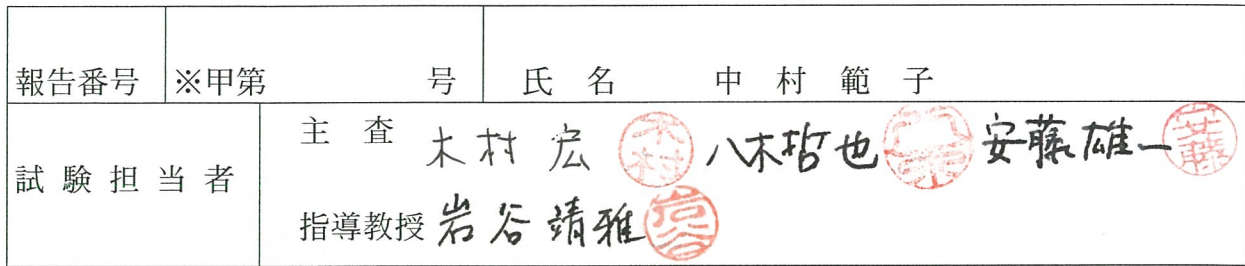 報告番号 ※甲第 号 氏名 中村範子
試験担当者 主査 木村宏 木村 八木哲也 安藤雄一 安藤
指導教授 岩谷靖雅 岩谷